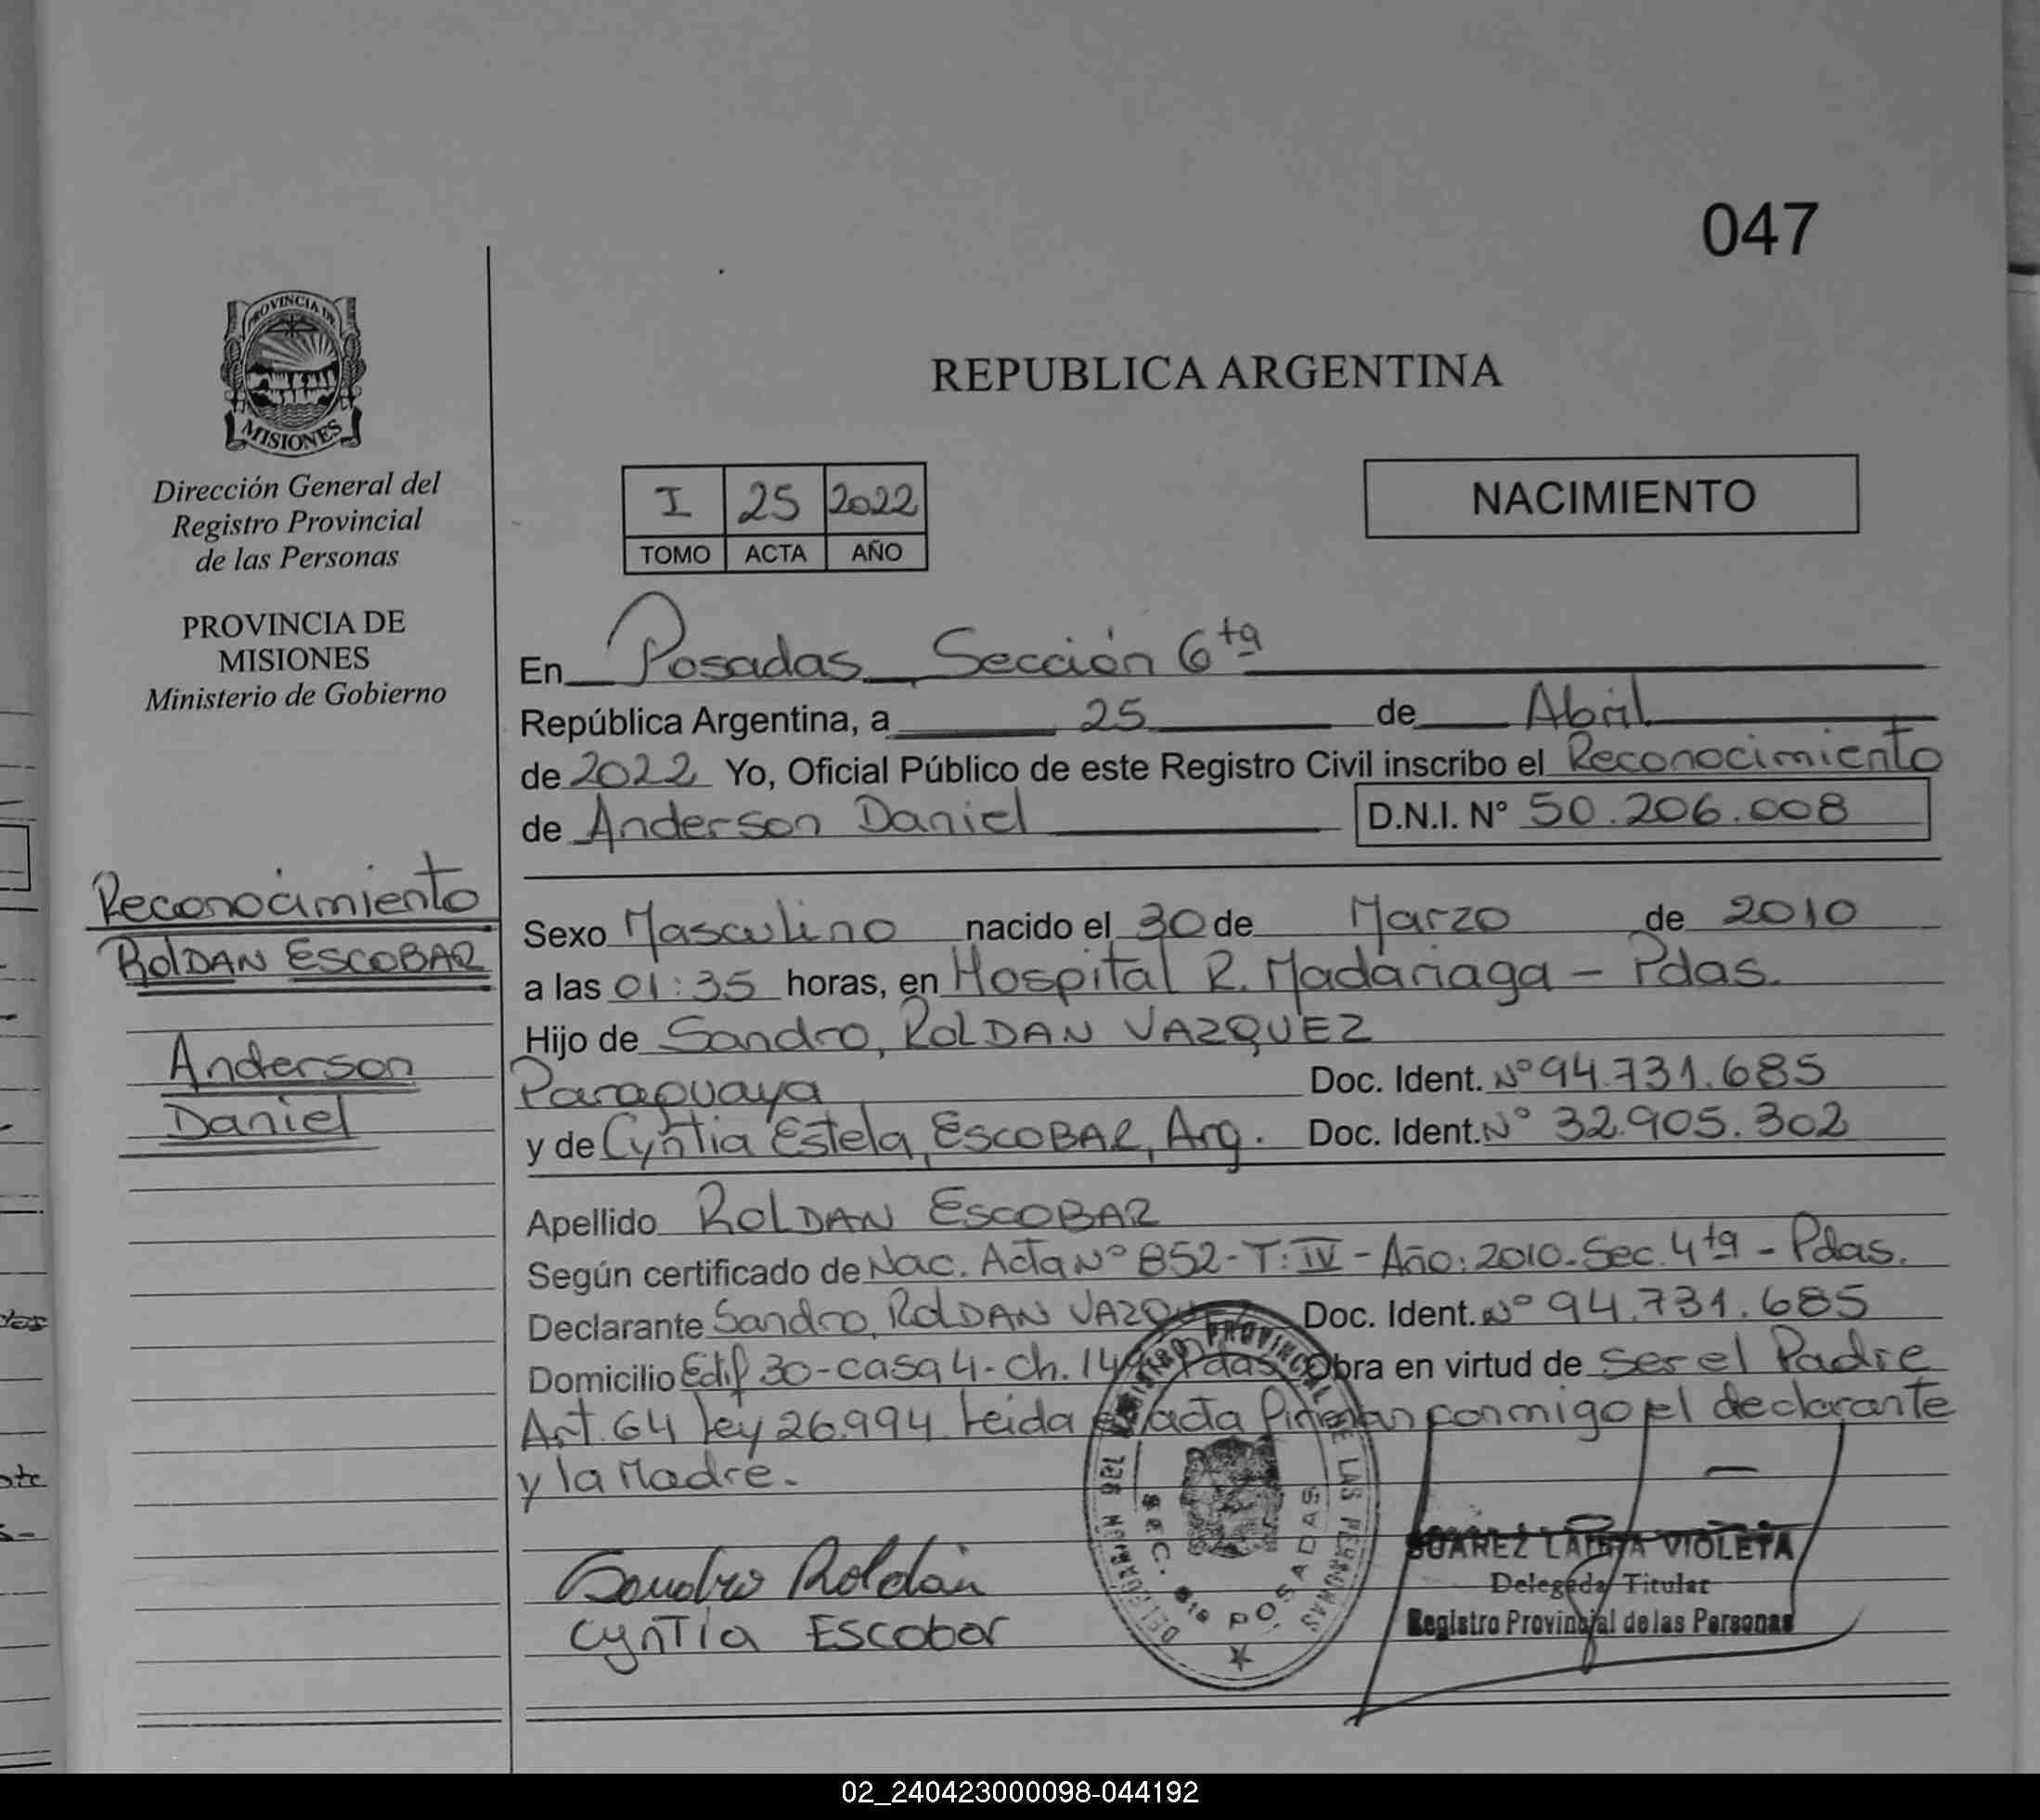 047
PROVINCIA DE
MISIONES
Dirección General del
Registro Provincial
de las Personas
PROVINCIA DE
MISIONES
Ministerio de Gobierno
Reconocimiento
ROLDAN ESCOBAR
Anderson
Daniel
REPUBLICA ARGENTINA
I 25 2022
TOMO ACTA AÑO
NACIMIENTO
En Posadas, Sección 6ta
República Argentina, a 25 de Abril
de 2022 Yo, Oficial Público de este Registro Civil inscribo el Reconocimiento
de Anderson Daniel D.N.I. N° 50.206.008
Sexo Masculino nacido el 30 de Marzo de 2010
a las 01:35 horas, en Hospital R. Madariaga - Pdas.
Hijo de Sandro, ROLDAN VAZQUEZ
Paraguaya Doc. Ident. N° 94.731.685
y de Cyntia Estela, ESCOBAR, Arg. Doc. Ident. N° 32.905.302
Apellido ROLDAN ESCOBAR
Según certificado de Nac. Acta N° 852 - T: IV - Año: 2010 - Sec. 4ta - Pdas.
Declarante Sandro, ROLDAN VAZQUEZ Doc. Ident. N° 94.731.685
Domicilio Edif 30 - casa 4 - Ch. 149 Pdas Obra en virtud de ser el Padre
Art. 64 Ley 26.994 Leida el acta Firman conmigo el declarante
y la Madre. -
Sandro Roldán
Cyntia Escobar
REGISTRO PROVINCIAL DE LAS PERSONAS
SEC. 6ta POSADAS
SUAREZ VIOLETA
Delegada Titular
Registro Provincial de las Personas
02_240423000098-044192